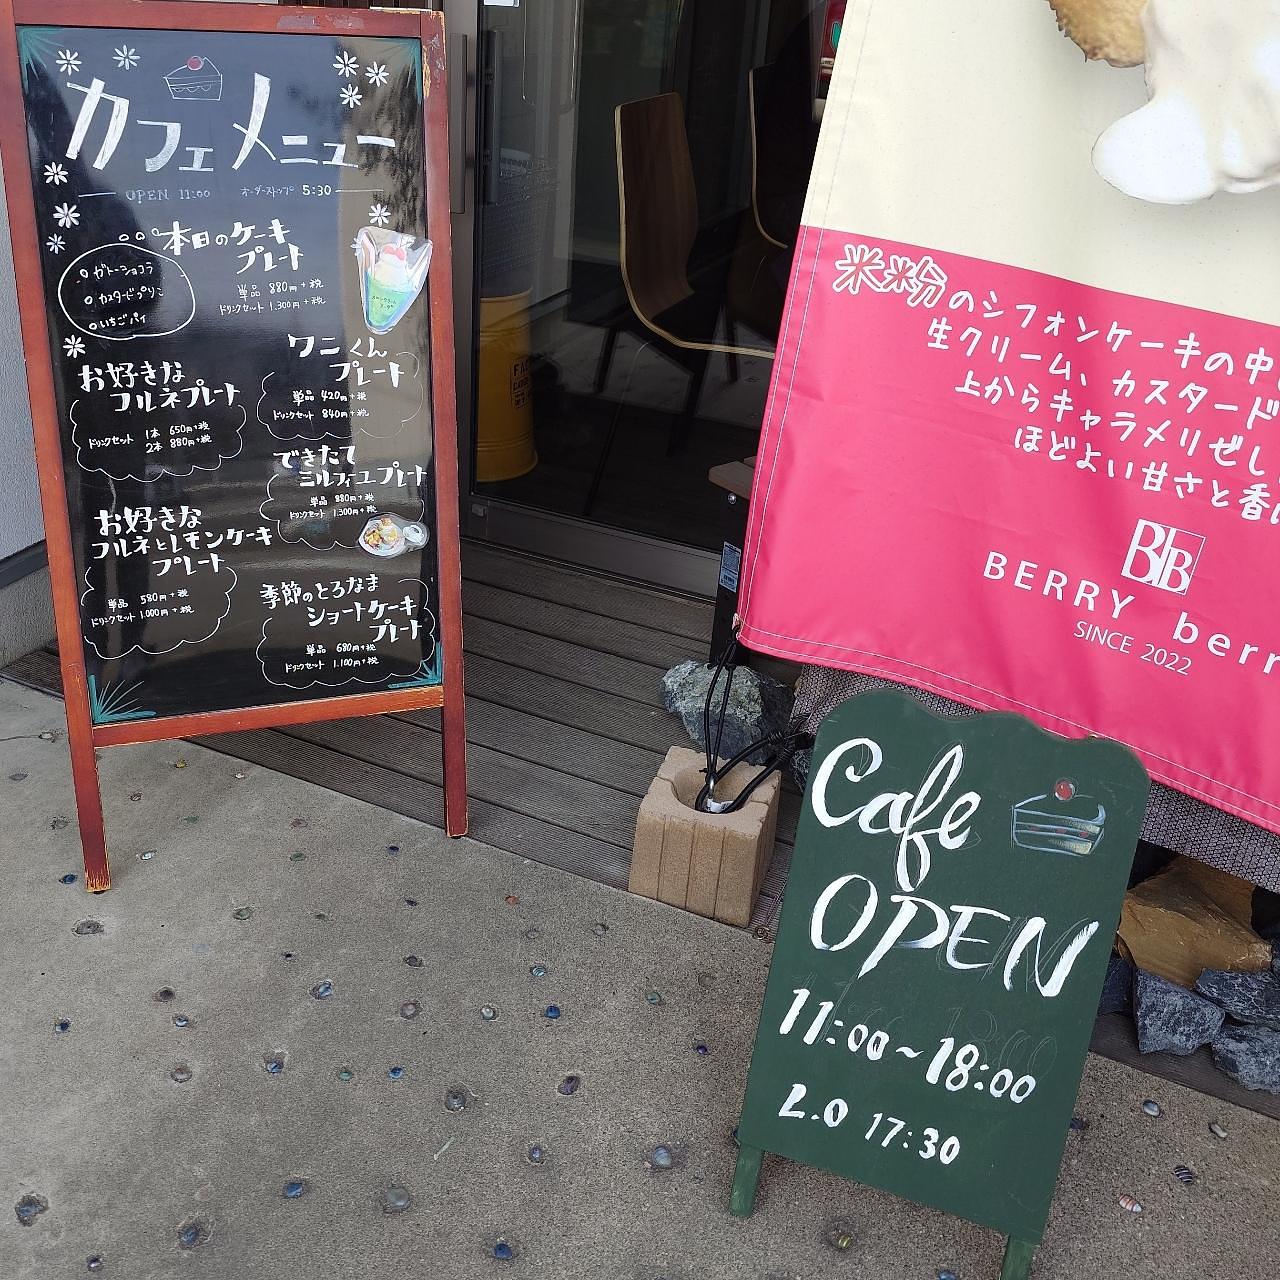 カフェメニュー
OPEN 11:00 オーダーストップ 5:30
本日のケーキ
プレート
単品 880円+税
ドリンクセット 1,300円+税
ガトーショコラ
カスタードプリン
いちごパイ
お好きな
コルネプレート
ドリンクセット 1本 650円+税
2本 880円+税
ワニくん
プレート
単品 420円+税
ドリンクセット 840円+税
できたて
ミルフィユプレート
単品 880円+税
ドリンクセット 1,300円+税
お好きな
コルネとレモンケーキ
プレート
単品 580円+税
ドリンクセット 1,000円+税
季節のとろなま
ショートケーキ
プレート
単品 680円+税
ドリンクセット 1,100円+税
米粉のシフォンケーキの中
生クリーム、カスタード
上からキャラメリゼし
ほどよい甘さと香
BB
BERRY berr
SINCE 2022
Cafe
OPEN
11:00~18:00
L.O 17:30